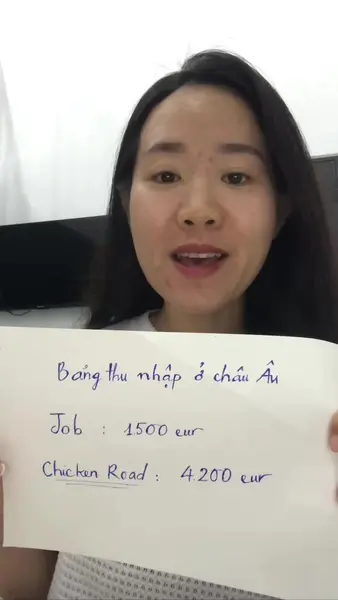 Bảng thu nhập ở châu Âu
Job : 1.500 eur
Chicken Road : 4.200 eur